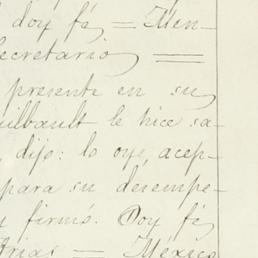 doy fé = Men-
Secretario =
presente en su
uilbault le hice sa-
dijo: lo oye, acep-
para su desempe-
firmó. Doy fé
Arias = México